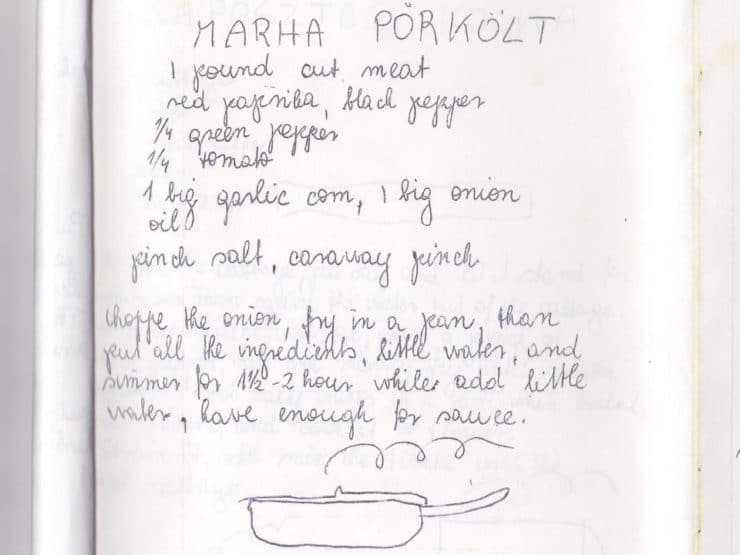 MARHA PÖRKÖLT
1 pound cut meat
red paprika, black pepper
1/4 green pepper
1/4 tomato
1 big garlic com, 1 big onion
oil
pinch salt, caraway pinch
Choppe the onion, fry in a pan, than
put all the ingredients, little water, and
simmer for 1½-2 hour while add little
water, have enough for sauce.